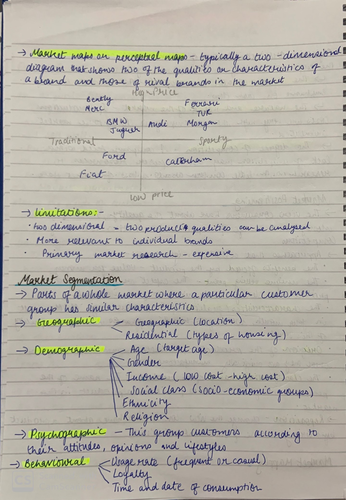 → Market maps or perceptual maps - typically a two-dimensional
diagram that shows two of the qualities or characteristics of
a brand and those of rival brands in the market
High Price
Bentley Ferrari
Merc TVR
BMW Audi Morgan
Jaguar
Traditional Sporty
Ford Caterham
Fiat
low price
→ limitations:-
• two dimensional - two product qualities can be analysed
• More relevant to individual brands
• Primary market research - expensive
Market Segmentation
→ Parts of a whole market where a particular customer
group has similar characteristics
→ Geographic - Geographic (location)
Residential (types of housing)
→ Demographic - Age (target age)
Gender
Income (low cost - high cost)
Social class (socio-economic groups)
Ethnicity
Religion
→ Psychographic - This group customers according to
their attitudes, opinions and lifestyles
→ Behavioural - Usage rate (frequent or casual)
Loyalty
Time and date of consumption